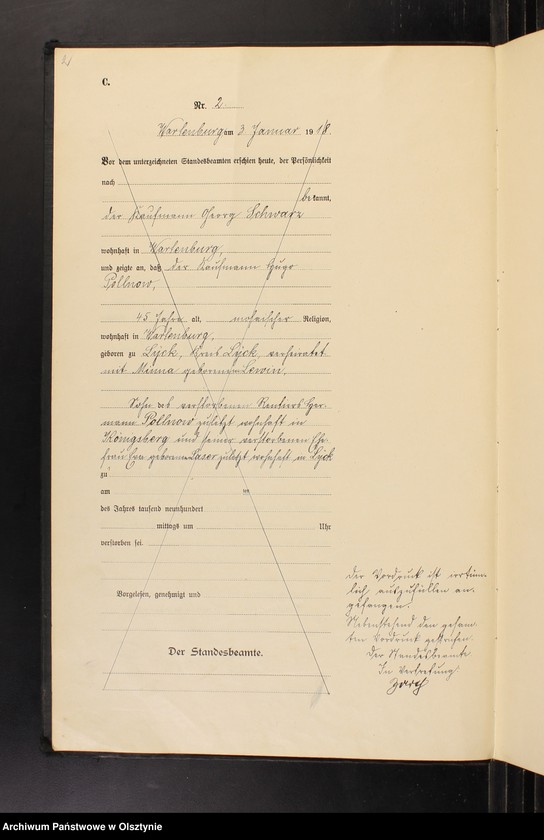 C.
Nr. 2
Wartenburg am 3. Januar 1918.
Vor dem unterzeichneten Standesbeamten erschien heute, der Persönlichkeit
nach
bekannt,
der Kaufmann Georg Schwarz
wohnhaft in Wartenburg,
und zeigte an, daß der Kaufmann Hugo
Pollnow,
45 Jahre alt, mosaischer Religion,
wohnhaft in Wartenburg,
geboren zu Lyck, Kreis Lyck, verheiratet
mit Minna geborenen Lewin,
Sohn des verstorbenen Rentiers Her-
mann Pollnow zuletzt wohnhaft in
Königsberg und seiner verstorbenen Ehe-
frau Eva geborenen Laser zuletzt wohnhaft in Lyck
zu
am ten
des Jahres tausend neunhundert
mittags um Uhr
verstorben sei.
Vorgelesen, genehmigt und
Der Standesbeamte.
Der Vordruck ist irrtüm-
lich auszufüllen an-
gefangen.
Nebenstehend den gesam-
ten Vordruck gestrichen.
Der Standesbeamte
In Vertretung
Archiwum Państwowe w Olsztynie